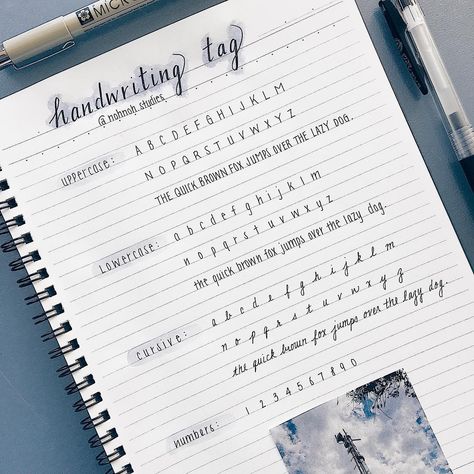 MICRON
handwriting tag
@nohnoh_studies
uppercase: A B C D E F G H I J K L M
N O P Q R S T U V W X Y Z
THE QUICK BROWN FOX JUMPS OVER THE LAZY DOG.
Lowercase: a b c d e f g h i j k l m
n o p q r s t u v w x y z
the quick brown fox jumps over the lazy dog.
cursive: a b c d e f g h i j k l m
n o p q r s t u v w x y z
the quick brown fox jumps over the lazy dog.
numbers: 1 2 3 4 5 6 7 8 9 0